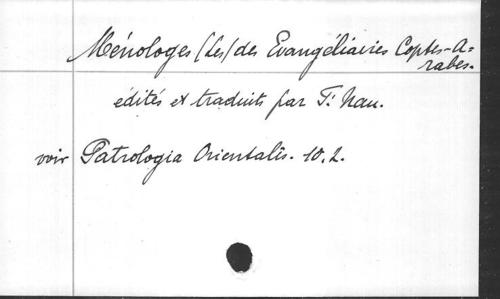 Ménologes (Les) des Evangéliaires Coptes-A=
rabes.
édités et traduits par F: Nau.
voir Patrologia Orientalis. 10,2.